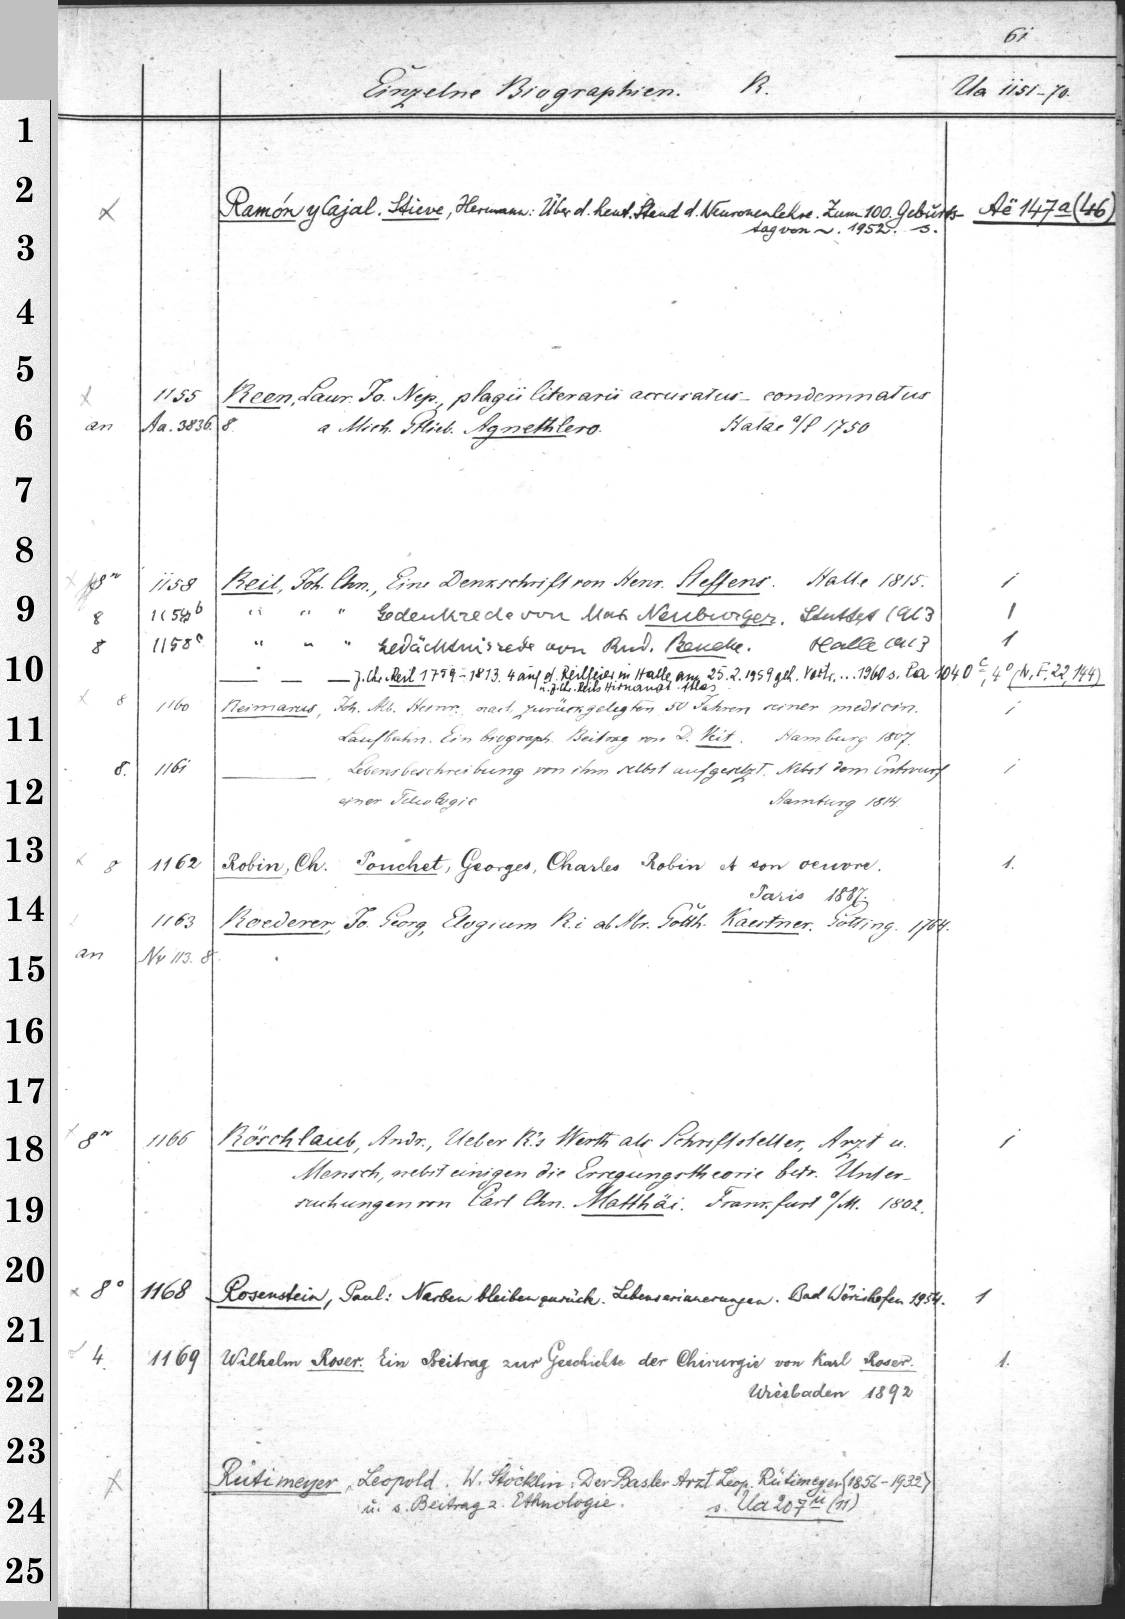 61
Einzelne Biographien. R. Ua 1151-70.
1
2
Ramón y Cajal. Stieve, Hermann: Über d. heut. Stand d. Neuronenlehre. Zum 100. Geburts- Aë 147a (46)
tag von ~. 1952. s.
3
4
5
x 1155 Reen, Laur. Jo. Nep., plagii literarii accusatus - condemnatus
6
an Aa. 3836. 8. a Mich. Gtlieb. Agnethlero. Halae a/S 1750
7
8
8 1158 Reil, Joh. Chn., Eine Denkschrift von Henr. Steffens. Halle 1815. 1
9
8 1158b " " " Gedenkrede von Max Neuburger. Stuttgt 1913 1
8 1158c " " " Gedächtnisrede von Rud. Beneke. Halle 1913 1
10
— — — J. Chr. Reil 1759-1813. 4 auf d. Reilfeier in Halle am 25.2.1959 geh. Vortr. ... 1960 s. Ea 1040 c, 4° (N.F. 22, 144)
x 8 1160 Reimarus, Joh. Alb. Heinr. nach zurückgelegten 50 Jahren seiner medicin. 1
11
Laufbahn. Ein biograph. Beitrag von D. Veit. Hamburg 1807.
8. 1161 ——— Lebensbeschreibung von ihm selbst aufgesetzt. Nebst dem Entwurf 1
12
einer Teleologie Hamburg 1814
13
x 8 1162 Robin, Ch. Pouchet, Georges, Charles Robin et son oeuvre. 1.
Paris 1887.
14
1163 Roederer, Jo. Georg, Elogium R.i ab Abr. Gotth. Kaestner. Götting. 1764.
15
an Nv 113. 8.
16
17
18
8 1166 Röschlaub, Andr., Ueber R's Werth als Schriftsteller, Arzt u. 1
Mensch, nebst einigen die Erregungstheorie betr. Unter-
19
suchungen von Carl Chn. Matthäi. Frankfurt a/M. 1802.
20
x 8° 1168 Rosenstein, Paul: Narben bleiben zurück. Lebenserinnerungen. Bad Wörishofen 1954. 1
21
4. 1169 Wilhelm Roser. Ein Beitrag zur Geschichte der Chirurgie von Karl Roser. 1.
22
Wiesbaden 1892
23
x Rütimeyer, Leopold. W. Stöcklin: Der Basler Arzt Leop. Rütimeyer (1856-1932)
24
u. s. Beitrag z. Ethnologie. s. Ua 207 u (11)
25